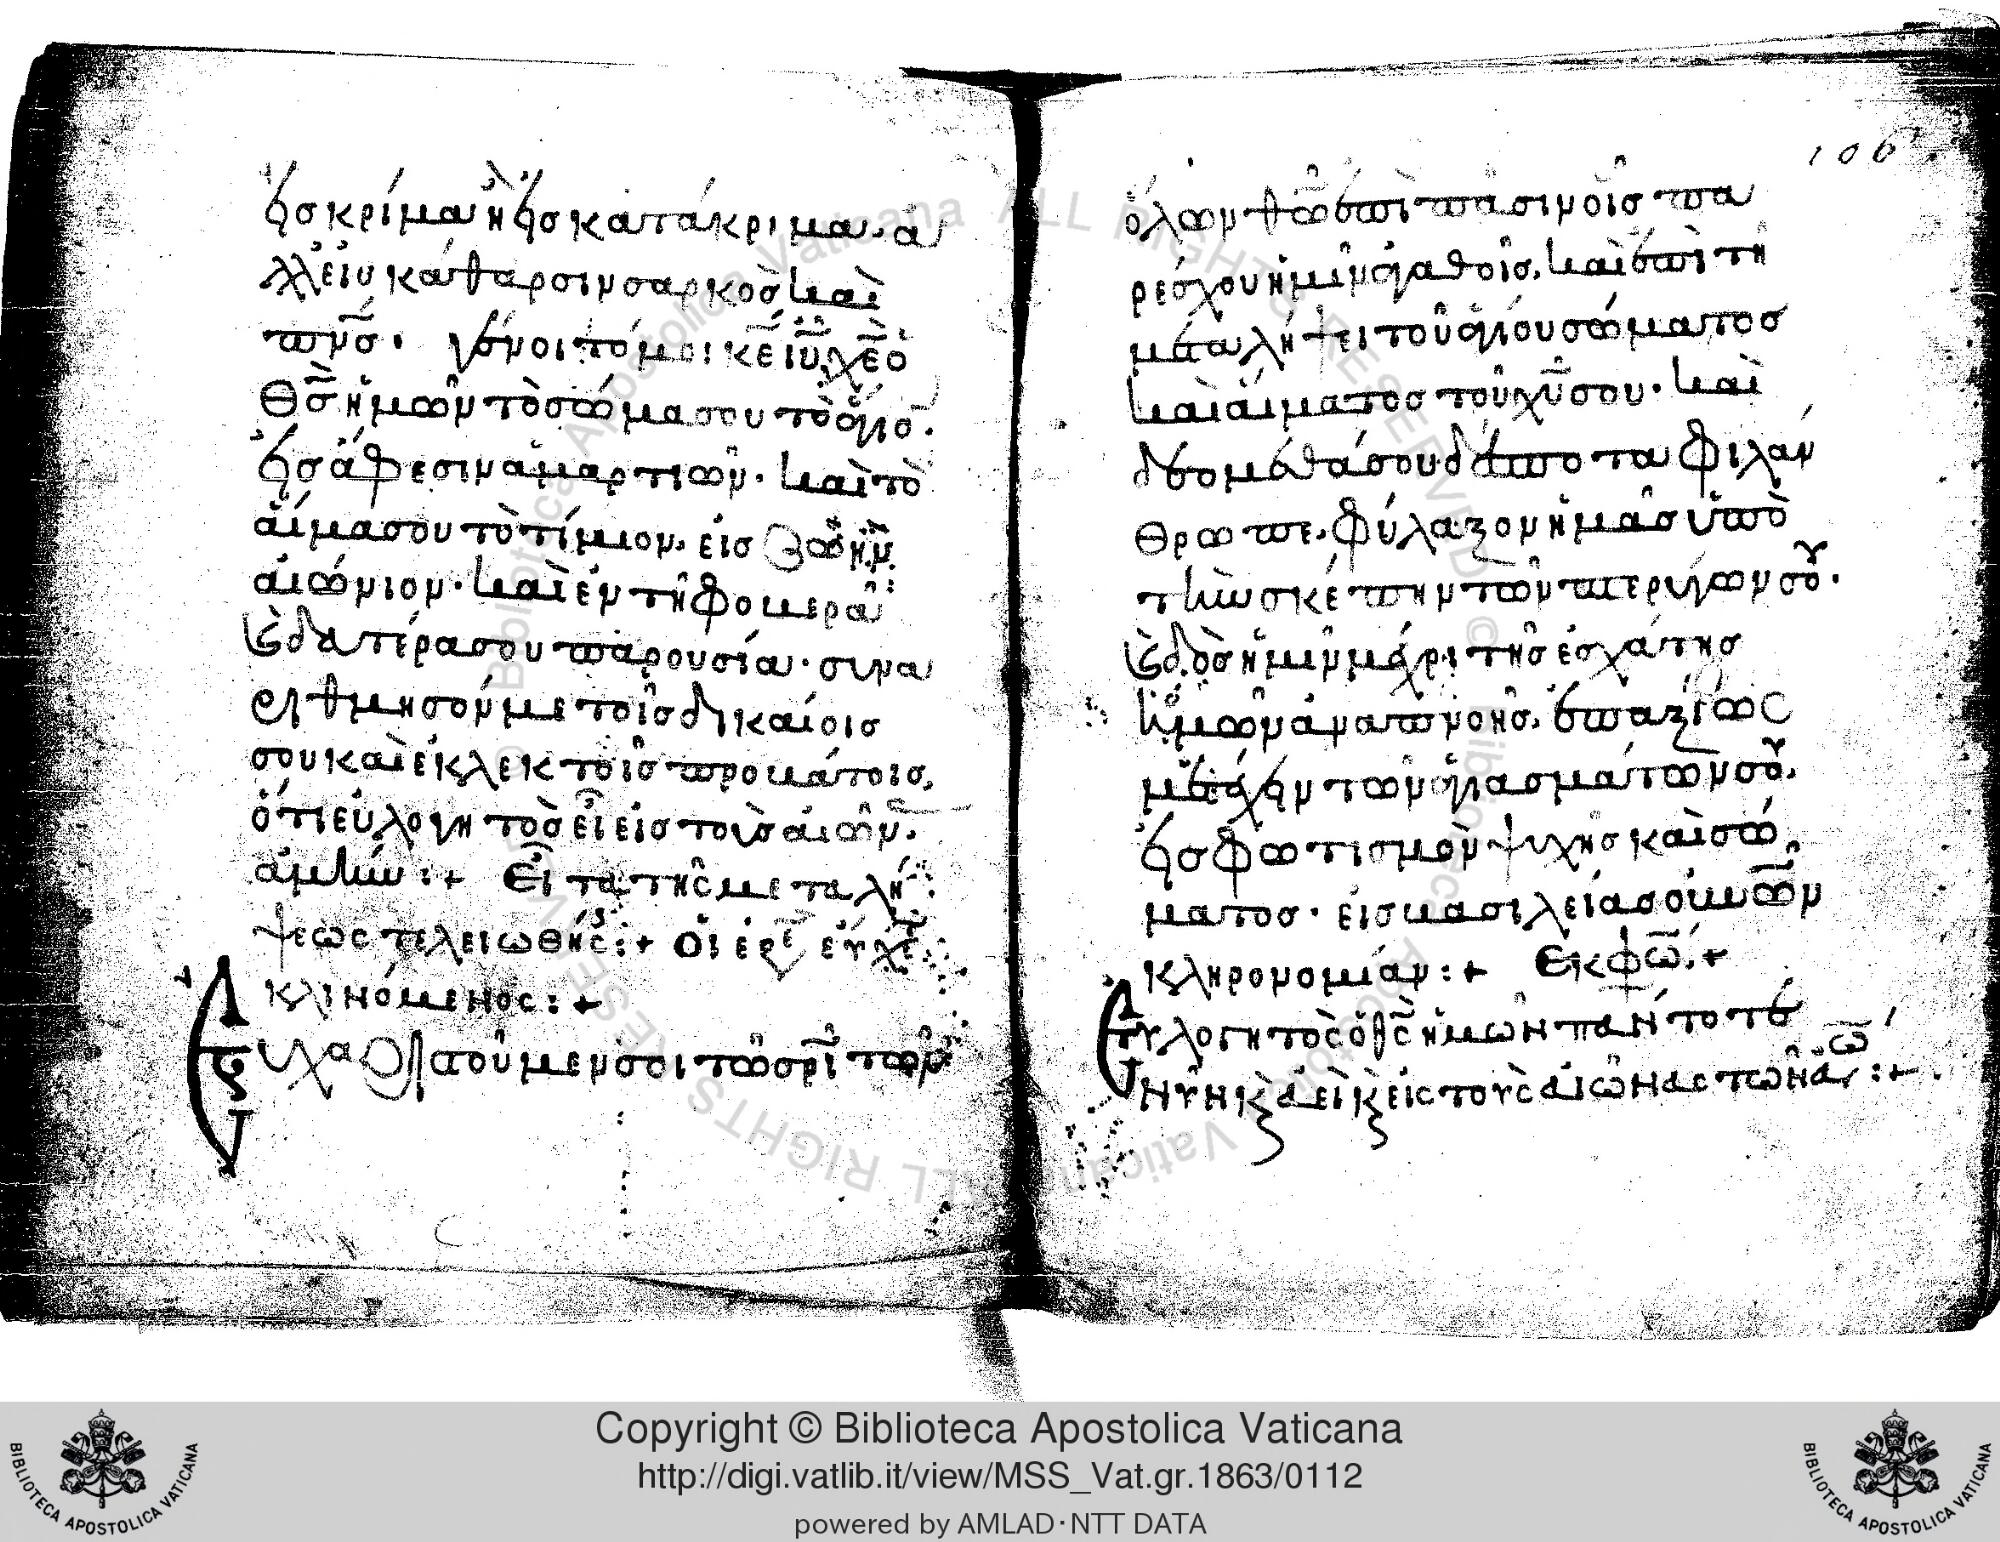 εἰς κρίμα ἢ εἰς κατάκριμα· ἀ
λλ' εἰς κάθαρσιν σαρκὸς καὶ
πν̅ς· γένοιτό μοι κε̅ ιυ̅ χε̅ ὁ
θς̅ ἡμῶν τὸ σῶμα σου τὸ ἅγιο̅
εἰς ἄφεσιν ἁμαρτιῶν· καὶ τὸ
αἷμα σου τὸ τίμιον, εἰς ζωὴν
αἰώνιον· καὶ ἐν τῇ φοβερᾷ
καὶ δευτέρα σου παρουσία· συνα
ριθμησόν με τοῖς δικαίοις
σου καὶ ἐκλεκτοῖς προβάτοις,
ὅτι εὐλογητὸς εἶ εἰς τοὺς αἰῶν·
ἀμήν:+ Εἶτα τῆς μεταλή
ψεως τελειωθής:+ ὁ ἱερε̅ εὔχε̅
κλινόμενος:+
Εὐχαριστοῦμεν σοι τῷ σρι̅ τῶν
106
ὅλων θῶ ἐπὶ πᾶσιν οἷς πα
ρέσχου ἡμῖν ἀγαθοῖς, καὶ ἐπὶ τῇ
μεταλήψει τοῦ ἁγίου σώματος
καὶ αἵματος τοῦ χυ̅ σου· καὶ
δεομεθά σου δέσποτα φιλάν
θρωπε, φύλαξον ἡμᾶς ὑπὸ
τὴν σκέπην τῶν πτερύγων σου·
καὶ δὸς ἡμῖν μέχρι τῆς ἐσχάτης
ἡμῶν ἀναπνοῆς, ἐπαξίως
μετέχειν τῶν ἁγιασμάτων σου,
εἰς φωτισμὸν ψυχῆς καὶ σώ
ματος· εἰς βασιλείας οὐνῶν
κληρονομίαν:+ Εκφω̅,+
Εὐλογητὸς ὁ θς̅ ἡμῶν πάντοτε
νῦν κὲ ἀεὶ κὲ εἰς τοὺς αἰῶνας τῶν αἰω̅:+
Copyright © Biblioteca Apostolica Vaticana
http://digi.vatlib.it/view/MSS_Vat.gr.1863/0112
powered by AMLAD·NTT DATA
BIBLIOTECA APOSTOLICA VATICANA
BIBLIOTECA APOSTOLICA VATICANA